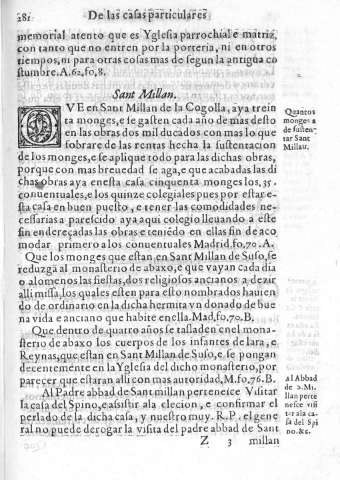 281 De las casas particulares
memorial atento que es Yglesia parrochial e matriz,
con tanto que no entren por la porteria, ni en otros
tiempos, ni para otras cosas mas de segun la antigua co
stumbre. A. 62, fo, 8.
Sant Millan.
QVE en Sant Millan de la Cogolla, aya trein
ta monges, e se gasten cada año de mas desto
en las obras dos mil ducados con mas lo que
sobrare de las rentas hecha la sustentacion
de los monges, e se aplique todo para las dichas obras,
porque con mas breuedad se aga, e que acabadas las di
chas obras aya en esta casa cinquenta monges los, 35.
conuentuales, e los quinze colegiales pues por estar e-
sta casa en buen puesto, e tener las comodidades ne-
cessarias a parescido aya aqui colegio lleuando a este
fin endereçadas las obras e teniēdo en ellas fin de aco
modar primero a los conuentuales Madrid. fo, 70. A.
Que los monges que estan en Sant Millan de Suso, se
reduzgā al monasterio de abaxo, e que vayan cada dia
o alomenos las fiestas, dos religiosos ancianos a dezir
alli missa, los quales esten para esto nombrados hauien
do de ordinario en la dicha hermita vn donado de bue
na vida e anciano que habite en ella. Mad, fo, 70. B.
Que dentro de quatro años se tasladen en el mona-
sterio de abaxo los cuerpos de los infantes de lara, e
Reynas, que estan en Sant Millan de Suso, e se pongan
decentemēnte en la Yglesia del dicho monasterio, por
parecer que estaran alli con mas autoridad, M. fo, 76. B.
Al Padre abbad de Sant millan pertenesce Visitar
la casa del Spino, e assistir ala elecion, e confirmar el
perlado de la dicha casa, y nuestro muy. R. P. el gene
ral no puede derogar la visita del padre abbad de Sant
Z 3 millan
Quantos
monges a
de susten-
tar Sant
Millau.
Al Abbad
de S. Mi.
llan perte
nesce visi
tar ala ca-
sa del Spi
no. &c.